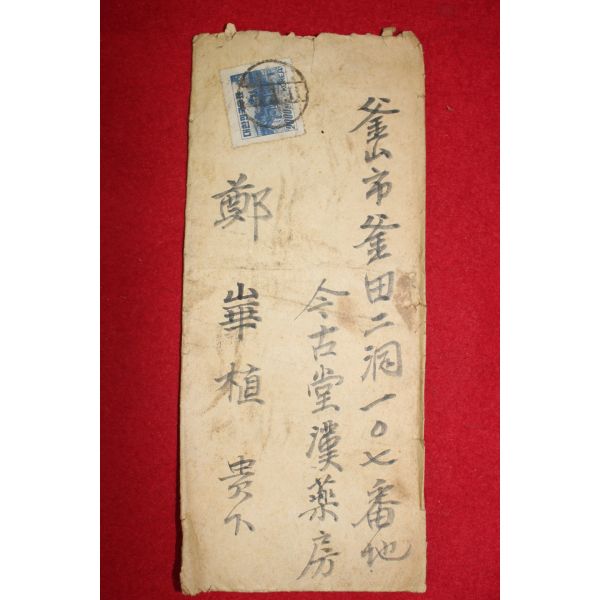 釜山市釜田二洞一〇七番地
今古堂漢藥房
鄭崋植 貴下